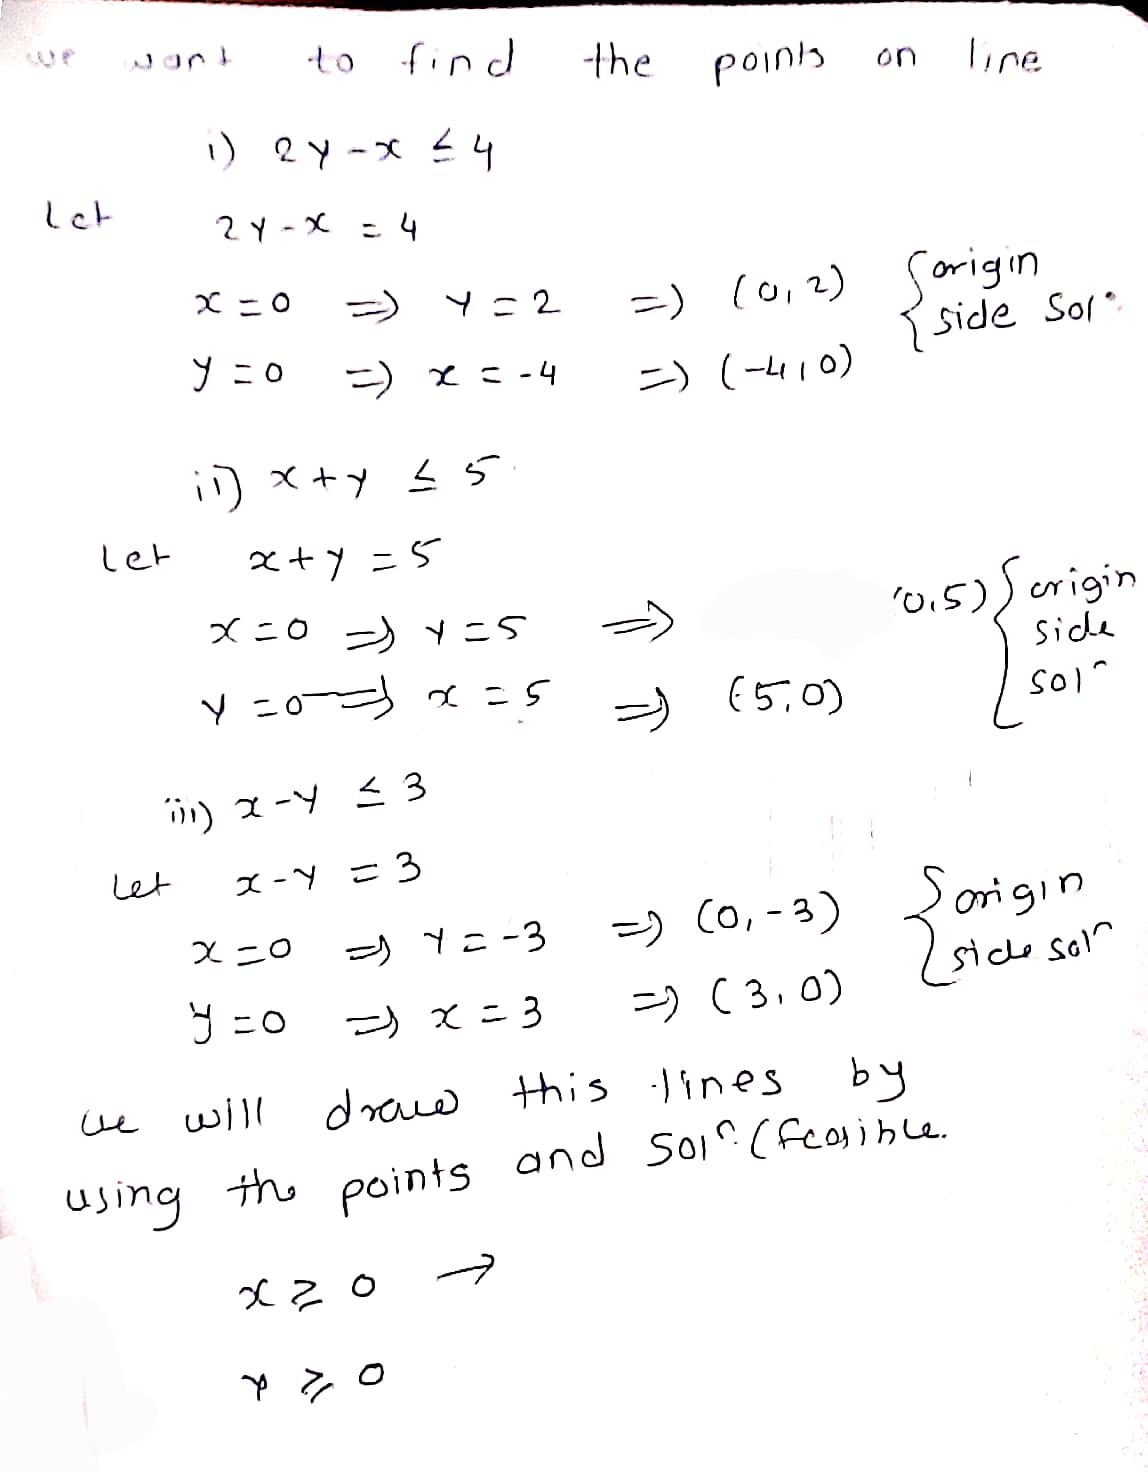 we want to find the points on line
i) 2y - x ≤ 4
let 2y - x = 4
x = 0 ⇒ y = 2 ⇒ (0, 2) { origin
y = 0 ⇒ x = -4 ⇒ (-4, 0) side Solⁿ
ii) x + y ≤ 5
let x + y = 5
x = 0 ⇒ y = 5 ⇒ (0, 5) { origin
side
y = 0 ⇒ x = 5 ⇒ (5, 0) solⁿ
iii) x - y ≤ 3
Let x - y = 3
x = 0 ⇒ y = -3 ⇒ (0, -3) { origin
side solⁿ
y = 0 ⇒ x = 3 ⇒ (3, 0)
we will draw this lines by
using the points and Solⁿ. (feasible.
x ≥ 0 →
y ≥ 0